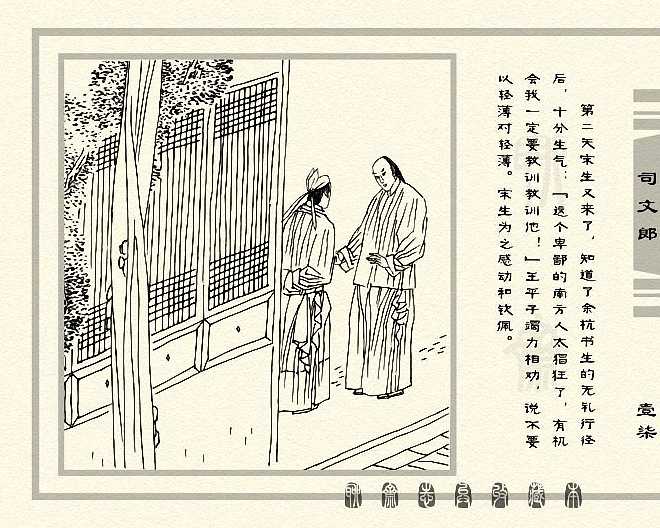 司文郎
壹柒
第二天宋生又来了，知道了余杭书生的无礼行径
后，十分生气：「这个卑鄙的南方人太猖狂了，有机
会我一定要教训教训他！」王平子竭力相劝，说不要
以轻薄对轻薄。宋生为之感动和钦佩。